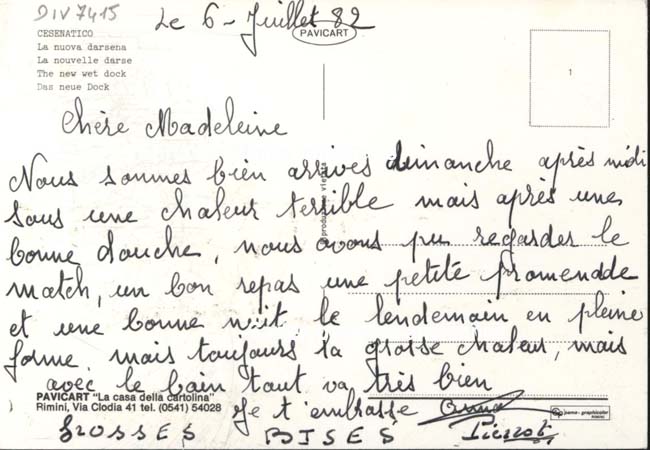 DIV 7415
Le 6 - Juillet 82
CESENATICO
La nuova darsena
La nouvelle darse
The new wet dock
Das neue Dock
PAVICART
1
Chère Madeleine
Nous sommes bien arrives dimanche après midi
sous une chaleur terrible mais après une
bonne douche, nous avons pu regarder le
match, un bon repas une petite promenade
et une bonne nuit, le lendemain en pleine
forme, mais toujours la grosse chaleur, mais
avec le bain tout va très bien
Je t'embrasse
GROSSES BISES Pierrot
riproduzione vietata
PAVICART "La casa della cartolina"
Rimini, Via Clodia 41 tel. (0541) 54028